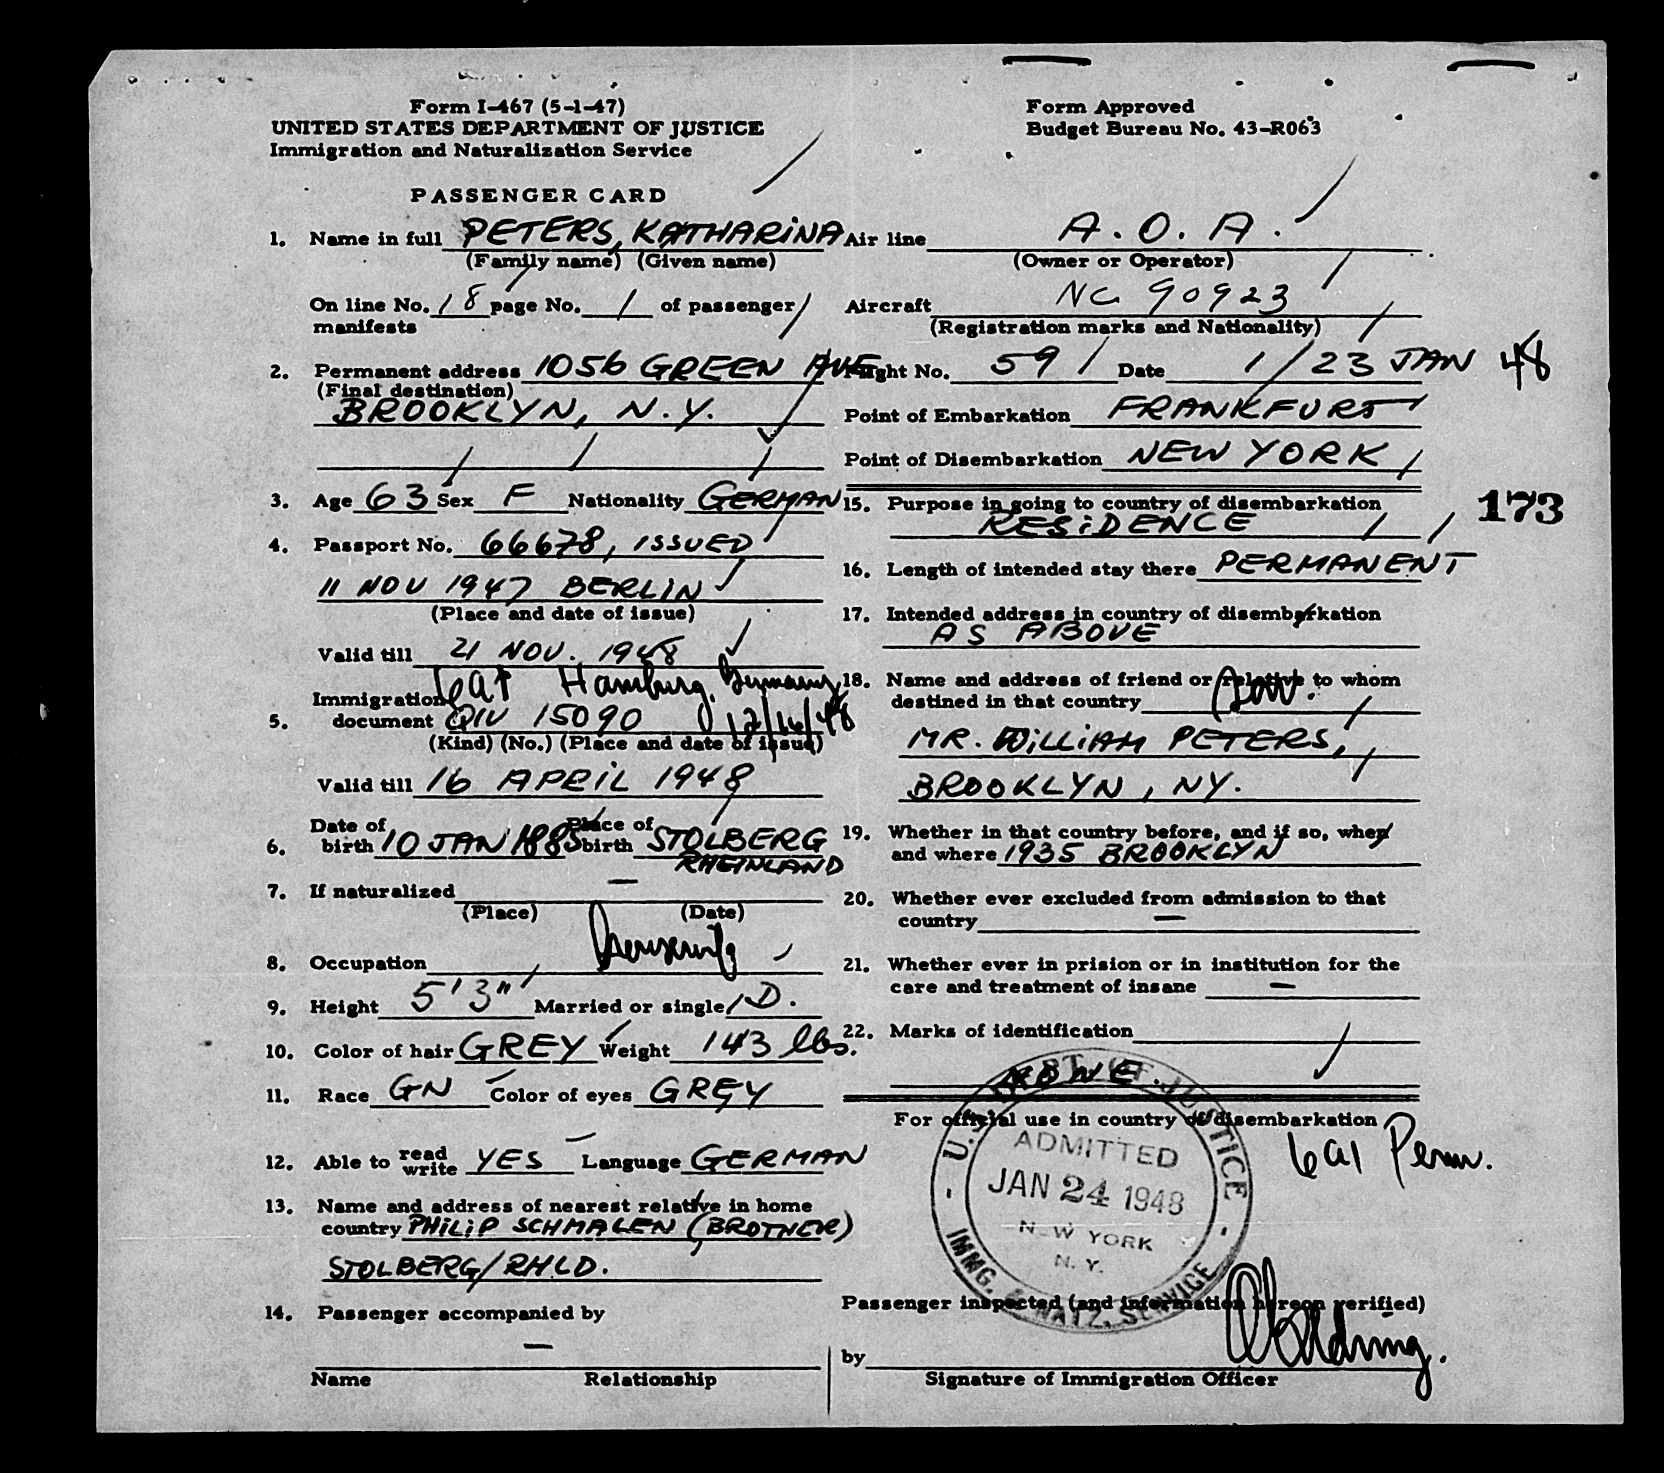 Form I-467 (5-1-47)
UNITED STATES DEPARTMENT OF JUSTICE
Immigration and Naturalization Service
PASSENGER CARD
1. Name in full PETERS, KATHARINA
(Family name) (Given name)
On line No. 18 page No. 1 of passenger
manifests
2. Permanent address 1056 GREEN AVE
(Final destination)
BROOKLYN, N.Y.
3. Age 63 Sex F Nationality GERMAN
4. Passport No. 66678, ISSUED
11 NOV 1947 BERLIN
(Place and date of issue)
Valid till 21 NOV. 1948
6a1 Hamburg, Germany
Immigration
5. document QIV 15090 12/16/48
(Kind) (No.) (Place and date of issue)
Valid till 16 APRIL 1948
Date of Place of
6. birth 10 JAN 1885 birth STOLBERG
RHEINLAND
7. If naturalized —
(Place) (Date)
8. Occupation
9. Height 5' 3" Married or single D.
10. Color of hair GREY Weight 143 lbs.
11. Race GN Color of eyes GREY
12. Able to read write YES Language GERMAN
13. Name and address of nearest relative in home
country PHILIP SCHMALEN (BROTHER)
STOLBERG/RHLD.
14. Passenger accompanied by
—
Name Relationship
Form Approved
Budget Bureau No. 43-R063
Air line A.O.A.
(Owner or Operator)
Aircraft NC 90923
(Registration marks and Nationality)
Flight No. 59 Date 1/23 JAN 48
Point of Embarkation FRANKFURT
Point of Disembarkation NEW YORK
15. Purpose in going to country of disembarkation
RESIDENCE
173
16. Length of intended stay there PERMANENT
17. Intended address in country of disembarkation
AS ABOVE
18. Name and address of friend or relative to whom
destined in that country Son.
MR. WILLIAM PETERS,
BROOKLYN, NY.
19. Whether in that country before, and if so, when
and where 1935 BROOKLYN
20. Whether ever excluded from admission to that
country —
21. Whether ever in prision or in institution for the
care and treatment of insane —
22. Marks of identification
NONE.
For official use in country of disembarkation
6a1 Perm.
U.S. DEPT. OF JUSTICE
ADMITTED
JAN 24 1948
NEW YORK
N. Y.
IMMG. & NATZ. SERVICE
Passenger inspected (and information hereon verified)
by
Signature of Immigration Officer